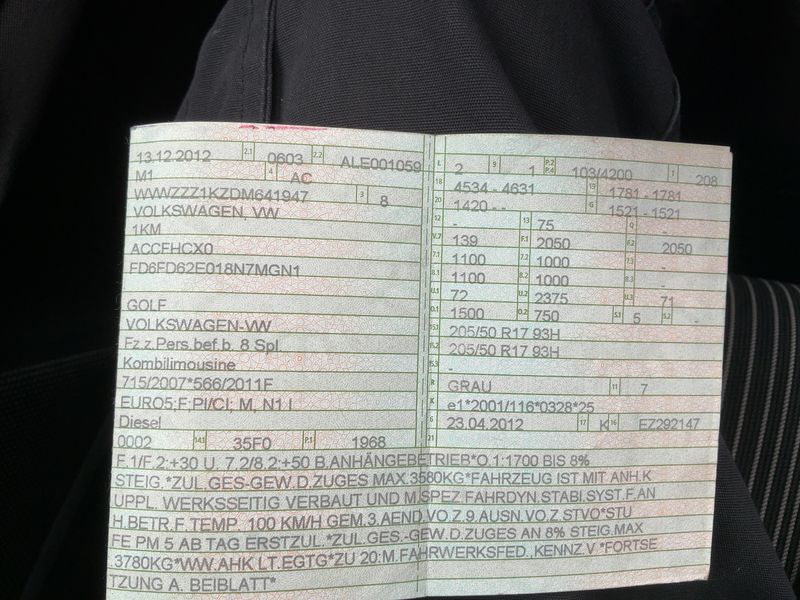 13.12.2012 2.1 0603 2.2 ALE001059
M1 4 AC
WVWZZZ1KZDM641947 3 8
VOLKSWAGEN, VW
1KM
ACCFHCX0
FD6FD62E018N7MGN1
GOLF
VOLKSWAGEN-VW
Fz.z.Pers.bef.b. 8 Spl
Kombilimousine
715/2007*566/2011F
EURO5;F;PI/CI; M, N1 I
Diesel
0002 14.1 35F0 P.1 1968
L 2 9 1 P.2 P.4 103/4200 T 208
18 4534 - 4631 19 1781 - 1781
20 1420 - - G 1521 - 1521
12 - 13 75 Q -
V.7 139 F.1 2050 F.2 2050
7.1 1100 7.2 1000 7.3 -
8.1 1100 8.2 1000 8.3 -
U.1 72 U.2 2375 U.3 71
O.1 1500 O.2 750 S.1 5 S.2 -
15.1 205/50 R17 93H
15.2 205/50 R17 93H
15.3 -
R GRAU 11 7
K e1*2001/116*0328*25
6 23.04.2012 17 K 16 EZ292147
21
F.1/F.2:+30 U. 7.2/8.2:+50 B.ANHÄNGEBETRIEB*O.1:1700 BIS 8%
STEIG.*ZUL.GES-GEW.D.ZUGES MAX.3580KG*FAHRZEUG IST MIT ANH.K
UPPL. WERKSSEITIG VERBAUT UND M.SPEZ.FAHRDYN.STABI.SYST.F.AN
H.BETR.F.TEMP. 100 KM/H GEM.3.AEND.VO.Z.9.AUSN.VO.Z.STVO*STU
FE PM 5 AB TAG ERSTZUL.*ZUL.GES.-GEW.D.ZUGES AN 8% STEIG.MAX
.3780KG*WW.AHK LT.EGTG*ZU 20:M.FAHRWERKSFED.,KENNZ.V *FORTSE
TZUNG A. BEIBLATT*